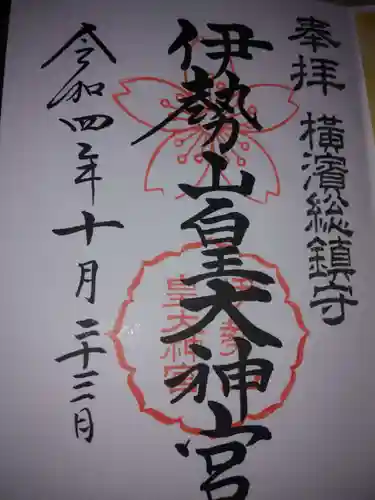 奉拝 横濱総鎮守
伊勢山皇大神宮
伊勢山
皇大神宮
令和四年十月二十三日